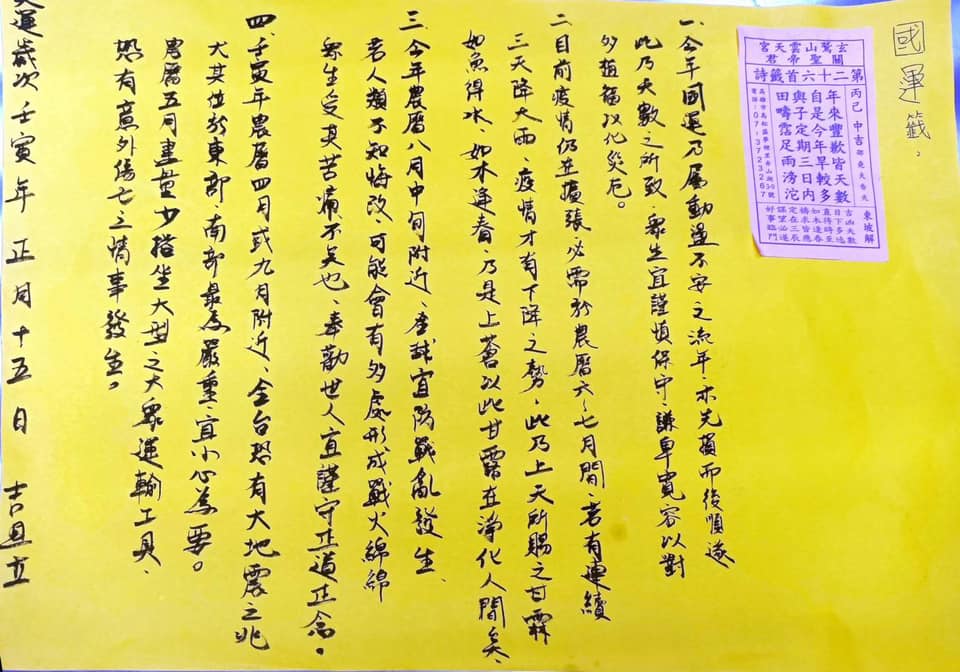 國運籤.
玄鷲山雲天宮
關聖帝君
第二十六首籤詩
丙己 中吉
年來豐歉皆天數
自是今年旱較多
與子定期三日內
田疇霑足雨滂沱
高雄市鳥松區華
電話:07-3723267
東坡解
吉凶天數
目下多迍
直待時至
如木逢春
禱求皆應
定在三辰
謀望必遂
好事臨門
一、今年國運乃屬動盪不安之流年、亦先損而後順遂
此乃天數之所致、眾生宜謹慎保守、謙卑寬容以對
多植福以化災厄。
二、目前疫情仍在擴張必需於農曆六、七月間、若有連續
三天降大雨、疫情才有下降之勢、此乃上天所賜之甘霖
如魚得水、如木逢春、乃是上蒼以此甘露在淨化人間矣、
三、今年農曆八月中旬附近、全球宜防戰亂發生、
若人類不知悔改、可能會有多處形成戰火綿綿
眾生受其苦痛、不矣也、奉勸世人宜謹守正道正念。
四、壬寅年農曆四月或九月附近、全台恐有大地震之兆
尤其位於東部、南部最為嚴重、宜小心為要。
農曆五月盡量少搭坐大型之大眾運輸工具、
恐有意外傷亡之情事發生。
天運歲次壬寅年正月十五日 吉旦立